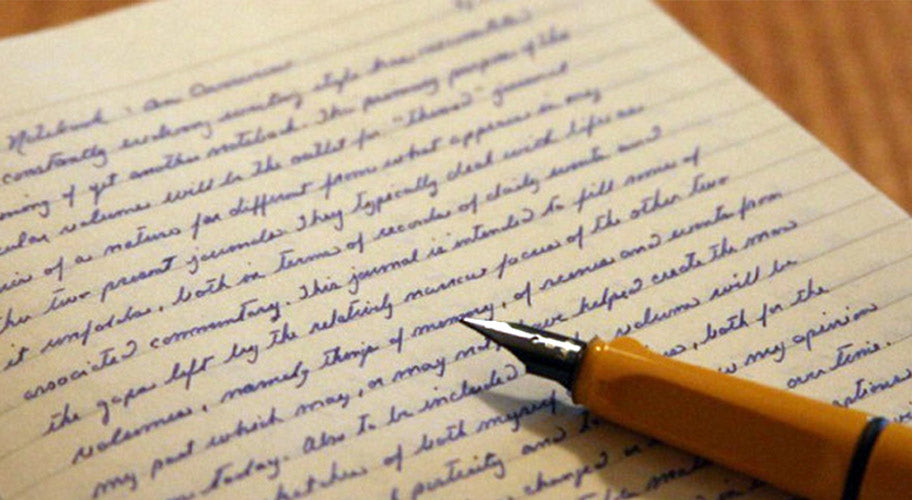 Notebook: An Overview
constantly evolving writing style has necessitated
ning of yet another notebook. The primary purpose of the
cular volume will be the outlet for "themed" journal
of a nature far different from what appears in my
two present journals. They typically deal with life as
it unfolds, both in terms of records of daily events and
associated commentary. This journal is intended to fill some of
the gaps left by the relatively narrow focus of the other two
volumes, namely things of memory, of scenes and events from
my past which may, or may not, have helped create the man
today. Also to be included volume will be
sketches of both myself , both for the
and my opinion
changed over time.